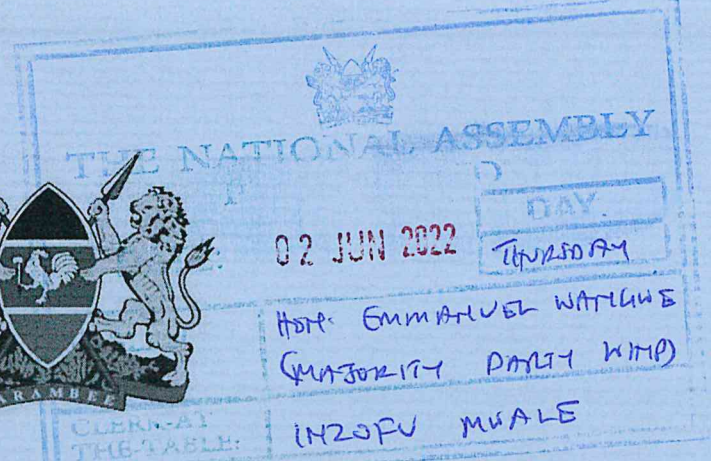 THE NATIONAL ASSEMBLY
P D
DAY.
02 JUN 2022 THURSDAY
HON. EMMANUEL WANGWE
(MAJORITY PARTY WHIP)
ARAMBEE
CLERK-AT
THE-TABLE: INZOFU MWALE